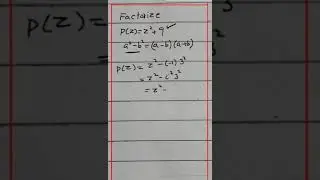 Factorize
P(z) = z² + 9 ✓
a² - b² = (a - b)(a + b)
P(z) = z² - (-1) 3²
= z² - i² 3²
= z² -